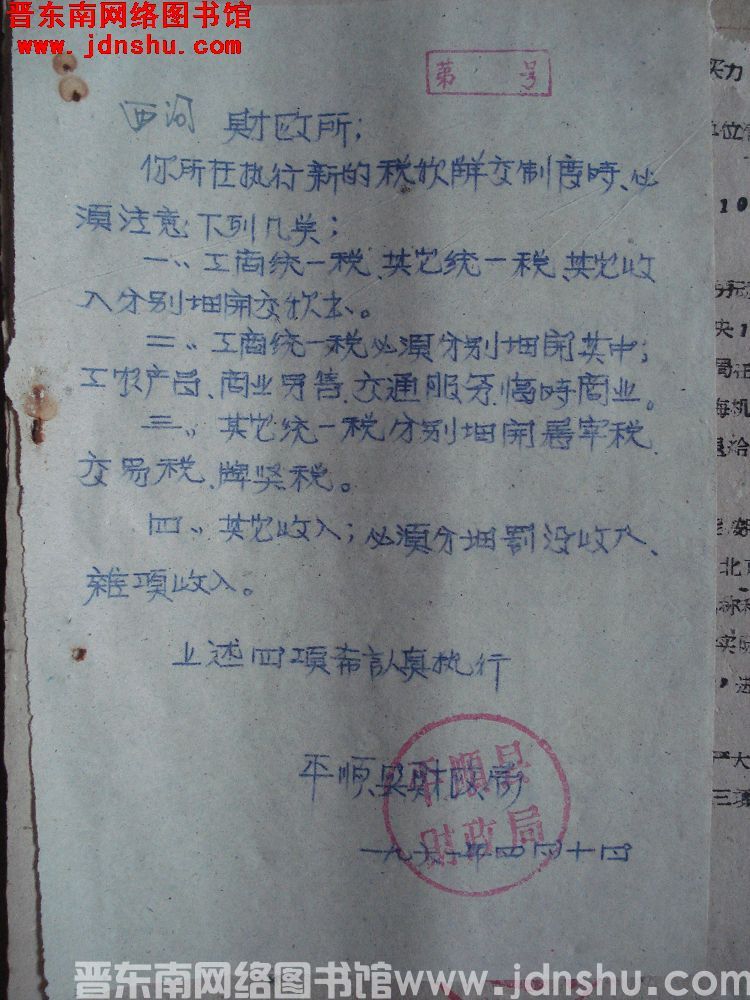 晋东南网络图书馆
www.jdnshu.com
第 号
西沟 財政所；
你所在执行新的税款解交制度時、必
須注意下列几点；
一、工商统一税、其它统一税、其它收
入分别细開交款书。
二、工商统一税必須分别细開其中；
工农产品、商业另售、交通服务、临時商业。
三、其它统一税分别细開屠宰税、
交易税、牌照税。
四、其它收入；必須分细罰没收入、
雜項收入。
上述四項希認真执行
平順县財政局
平順县
財政局
一九六 年四月十四
买力
单位
10
央1
局
海机
退给
北京
实际
，进
严大
三項
晋东南网络图书馆www.jdnshu.com